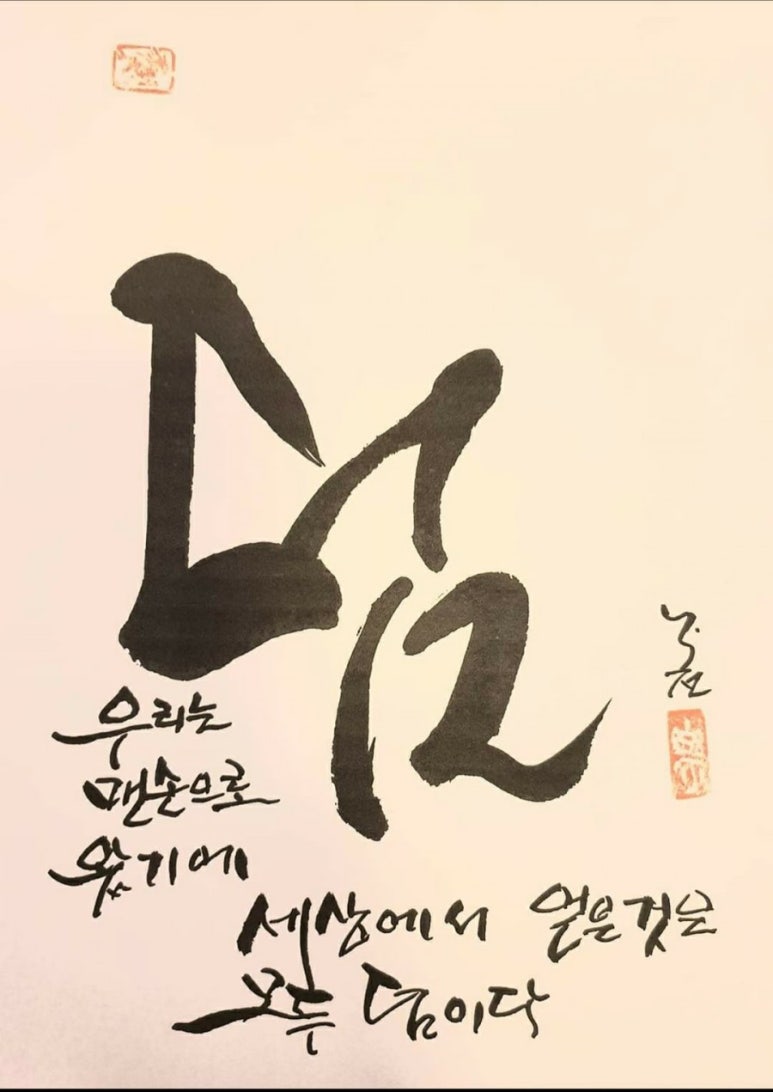 덤
우리는
맨손으로
왔기에
세상에서 얻은것은
모두 덤이다